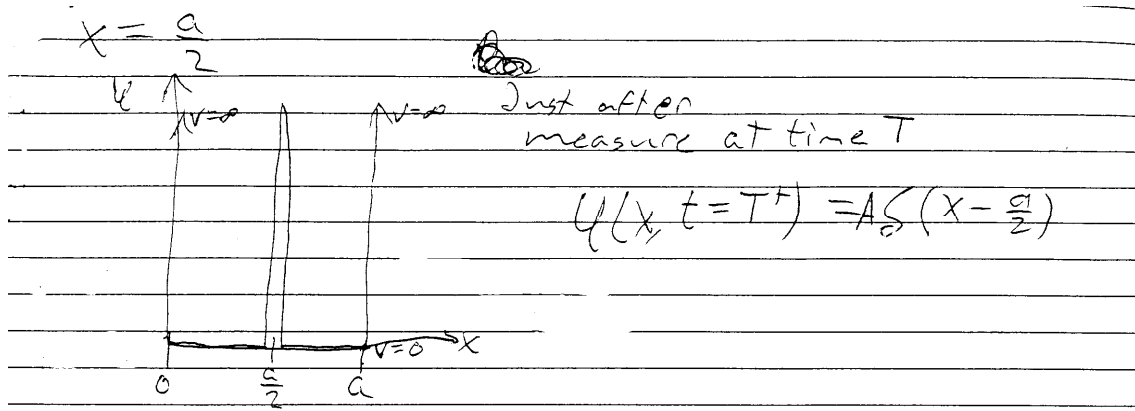 x = a/2
ψ
V=∞
V=∞
Just after
measure at time T
ψ(x, t=T⁺) = Aδ(x - a/2)
V=0
x
0
a/2
a